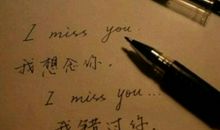 I miss you.
我想念你.
I miss you...
我错过你.